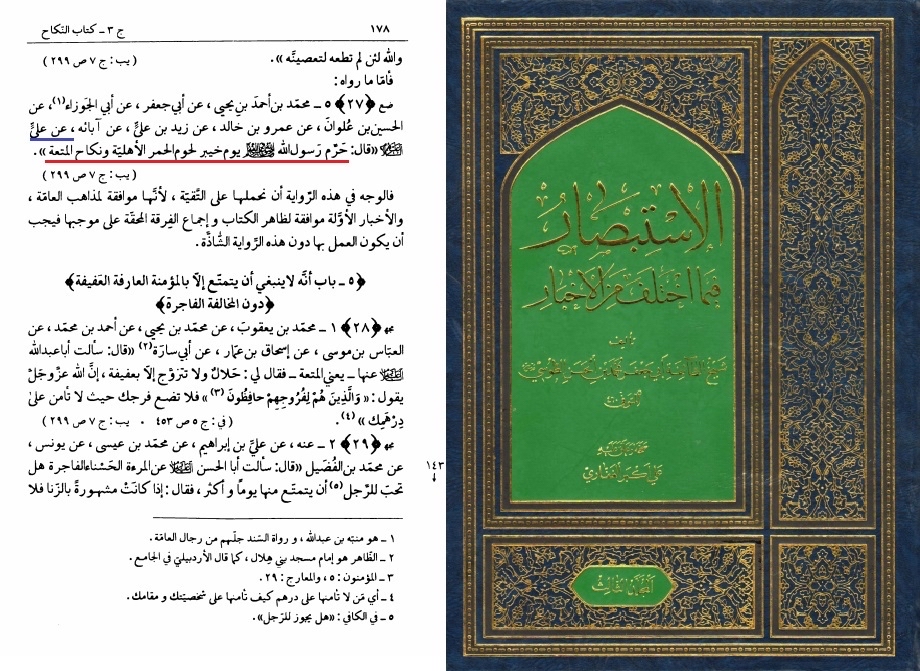 ١٧٨
ج ٣ ـ كتاب النّكاح
والله لئن لم تطعه لتعصينّه».
(يب: ج ٧ ص ٢٩٩)
فأمّا ما رواه:
ضع ﴿٢٧﴾ ٥ ـ محمّد بن أحمد بن يحيى، عن أبي جعفر، عن أبي الجَوزاء(١)، عن
الحسين بن عُلوان، عن عمرو بن خالد، عن زيد بن عليّ، عن آبائه، عن عليّ
«قال: حَرَّم رَسول الله يوم خيبر لحوم الحمر الأهليّة ونكاح المتعة».
(يب: ج ٧ ص ٢٩٩)
فالوجه في هذه الرِّواية أن نحملها على التَّقيّة، لأنّها موافقة لمذاهب العامّة،
والأخبار الأوَّلة موافقة لظاهر الكتاب وإجماع الفِرقة المحقّة على موجبها فيجب
أن يكون العمل بها دون هذه الرِّواية الشّاذَّة.
﴿٥ ـ باب أنّه لاينبغي أن يتمتّع إلّا بالمؤمنة العارفة العَفيفة﴾
﴿دون المخالفة الفاجرة﴾
﴿٢٨﴾ ١ ـ محمّد بن يعقوبَ، عن محمّد بن يحيى، عن أحمد بن محمّد، عن
العبّاس بن موسى، عن إسحاق بن عمّار، عن أبي سارَة(٢) «قال: سألت أباعبدالله
عنها ـ يعني المتعة ـ فقال لي: حَلالٌ ولا تتزوَّج إلّا بعفيفة، إنَّ الله عزّوجلّ
يقول: «وَالَّذِينَ هُمْ لِفُرُوجِهِمْ حافِظُونَ(٣)» فلا تضع فرجك حيث لا تأمن على
دِرْهَمِك»(٤).
(في: ج ٥ ص ٤٥٣ . يب: ج ٧ ص ٢٩٩)
﴿٢٩﴾ ٢ ـ عنه، عن عليّ بن إبراهيم، عن محمّد بن عيسى، عن يونس،
عن محمّد بن الفُضَيل «قال: سألت أبا الحسن عن المرءة الحَسْناء الفاجرة هل
١٤٣
تحبّ للرَّجل(٥) أن يتمتّع منها يوماً و أكثر، فقال: إذا كانَتْ مشهورةً بالزِّنا فلا
١ ـ هو منبّه بن عبدالله، و رواة السّند جلّهم من رجال العامّة.
٢ ـ الظّاهر هو إمام مسجد بني هِلال، كما قال الأردبيليّ في الجامع.
٣ ـ المؤمنون: ٥، والمعارج: ٢٩.
٤ ـ أي مَن لا تأمنها على درهم كيف تأمنها على شخصيّتك و مقامك.
٥ ـ في الكافي: «هل يجوز للرّجل».
الاستبصار
فيما اختلف من الأخبار
تأليف
شيخ الطائفة أبي جعفر محمد بن الحسن الطوسي
علي أكبر الغفاري
المجلد الثالث